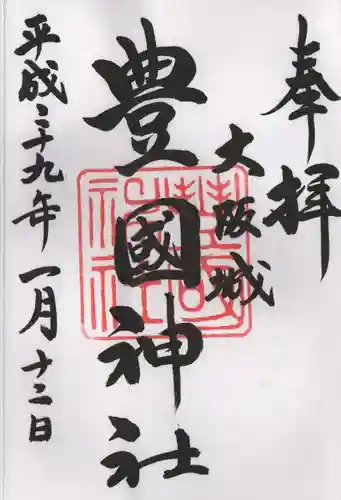 奉拝
大阪城
豊國神社
平成二十九年一月十二日